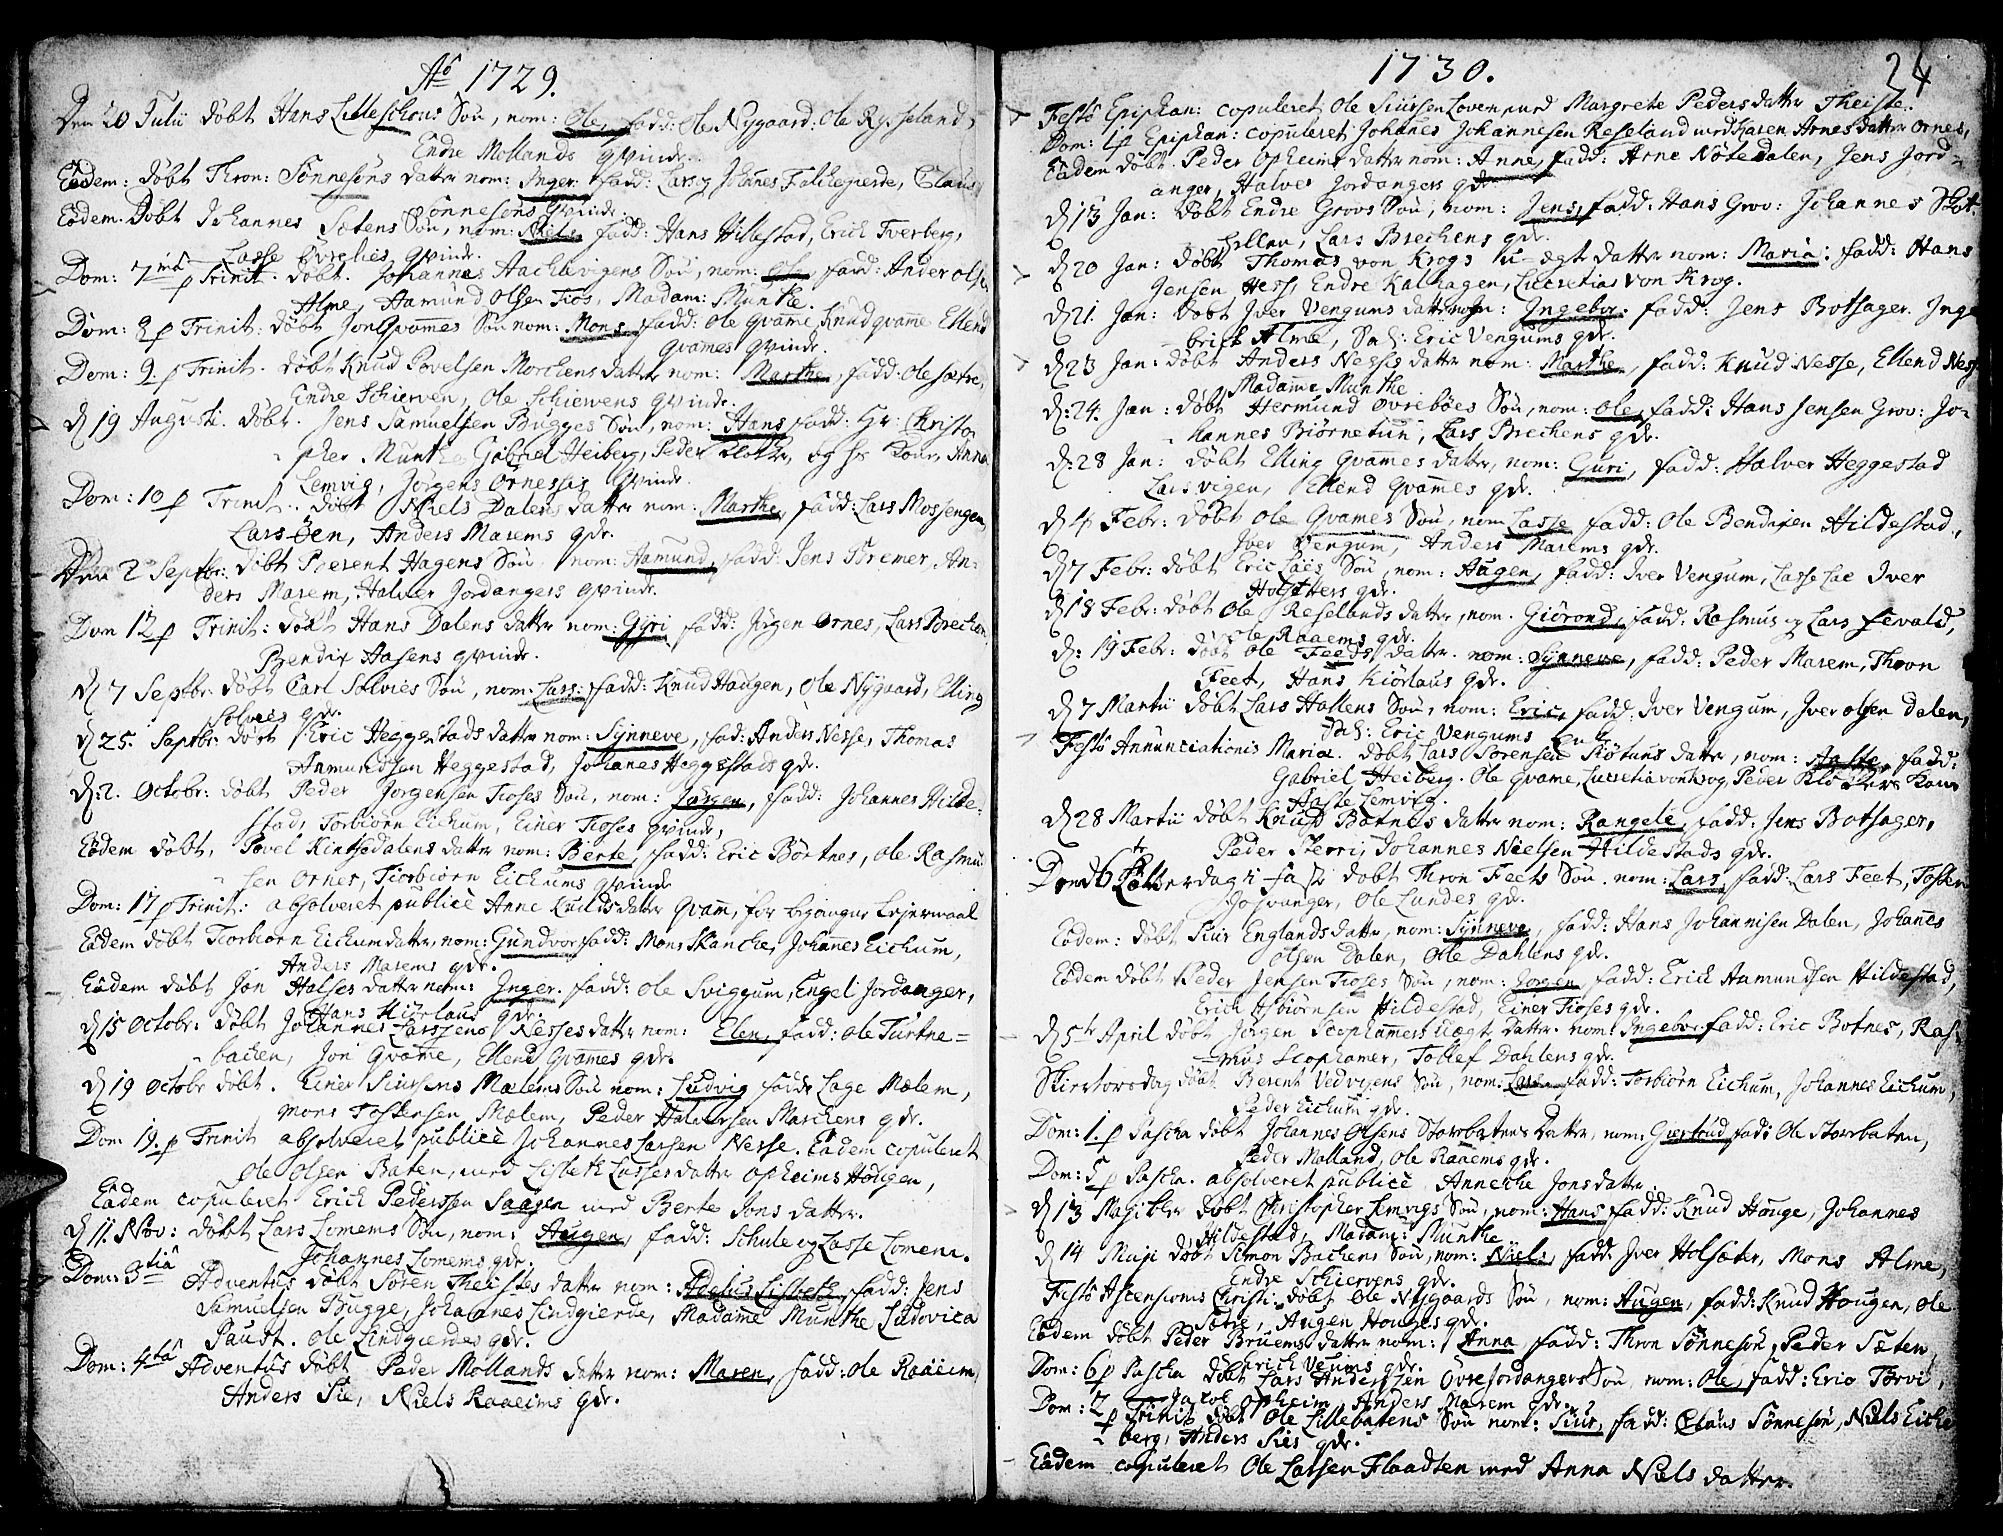 Aô 1729.
Den 20 Julii døbt Hans Lilleschous Søn, nom: Ole, fadd: Ole Nygaard: Ole Rysseland,
Endre Mollands qvinde.
Eâdem: døbt Thron: Sønnesøns datter nom: Inger fadd: Lars og Johñes Falchegierde, Claus
Sønnesøns qvinde.
Eâdem. Døbt Johannes Sætens Søn, nom: Niels, fadd: Hans Hillestad, Erich Tverberg,
Lasse Øvrelies qvinde.
Dom: 7mâ p Trinit. døbt. Johannes Aachevigens Søn, nom: Ole, fadd: Ander Olss.
Alme, Aamund Olsen Fios, Madam: Munthe.
Dom: 8 p Trinit: døbt Jon Qvames Søn nom: Mons, fadd: Ole Qvame, Knud Qvame Ellend
Qvames qvinde.
Dom: 9. p Trinit. døbt Knud Povelsen Morchens datter nom: Marthe, fadd: Ole Sætre,
Endre Schierven, Ole Schiervens qvinde.
d 19 Augusti. døbt. Jens Samuelsen Bugges Søn, nom: Hans fadd: Hr: Christo-
pher Munthe Gabriel Heiberg, Peder Klocker, og hs Kone, Anna
Lemvig, Jørgens Ornessis qvinde.
Dom: 10 p Trinit. døbt Niels Dalens datter nom: Marthe, fadd: Lars Mossengen,
Lars Øen, Anders Marems qde.
Den 2 Septbr: døbt Berent Hagens Søn nom: Aamund, fadd: Jens Bremer, An-
ders Marem, Halver Jordangers qvinde.
Dom 12 p Trinit: døbt Hans Dalens datter nom: Gyri fadd: Jørgen Ornes, Lars Brechen
Bendix Aasens qvinde.
d 7 Septbr. døbt Carl Solvies Søn, nom: Lars: fadd: Knud Haugen, Ole Nygaard, Elling
Solvies qde.
d 25. Septbr: døbt Eric Heggestads datter nom: Synneve, fad: Anders Nesse, Thomas
Aamundsen Heggestad, Johanes Heggestads qde.
d: 2. Octobr: døbt Peder Jørgensen Fioses Søn, nom: Jørgen, fadd: Johannes Hilde-
stad, Torbiørn Eichum, Einer Fioses qvinde,
Eâdem døbt, Povel Kintsedalens datter nom: Berte, fadd: Eric Børtnes, Ole Rasmu-
sen Ornes, Torbiørn Eichums qvinde
Dom: 17 p Trinit: absolveret publicè Anne Knudsdatter Qvam, for begangne Leiermaal
Eâdem døbt Torbiørn Eichum datter, nom: Gundvor fadd: Mons Skancke, Johañes Eichum,
Anders Marems qde.
Eâdem døbt Jon Halses datter nom: Inger. fadd: Ole Sviggum, Engel Jordanger,
Hans Kiørlaus qde.
d 15 Octobr: døbt Johannes Larssens Nesses datter nom: Elen, fadd: Ole Turtne=
bacten, Jon Qvame, Ellend Qvames qde.
d 19 Octobr døbt. Einer Siursens Mælems Søn nom: Ludvig fadd: Lage Mælem,
Mons Tostensen Mælem, Peder Halversen Marchens qde.
Dom 19. p Trinit absolveret publicè Johannes Larsen Nesse. Eâdem copuleret
Ole Olsen Baten, med Lisbeth Lassesdatter Opheims Hougen,
Eâdem copuleret Erich Pedersen Saagen med Berte Jons datter.
d 11. Nov: døbt Lars Lomems Søn, nom: Augen, fadd: Schule og Lasse Lomem.
Johannes Lomems qde.
Dom: 3tiâ Adventus døbt Søren Theistes datter nom: Adelus Lisbeth, fadd: Jens
Samuelsen Bugge, Johannes Lindgierde, Madame Munthe Ludovica
Paust. Ole Lindgierdes qde.
Dom: 4tâ Adventus døbt Peder Mollands datter nom: Maren, fadd: Ole Raaeim,
Anders Sie, Niels Raaeims qde.
1730.
24
Festô Epiphan: copuleret Ole Siursen Loven, med Margrete Pedersdatter Theiste.
Dom: 1 p Epiphan: copuleret Johañes Johannesen Reseland med Karen Arnesdatter Ornes,
Eâdem døbt Peder Opheims datter nom: Anne, fadd: Arne Nøtedalen, Jens Jord-
anger, Halver Jordangers qde.
d 13 Jan: døbt Endre Grovs Søn, nom: Jens, fadd: Hans Grov: Johannes Skot-
hellen, Lars Brechens qde.
d 20 Jan: døbt Thomas von Krogs u-ægt datter nom: Maria: fadd: Hans
Jensen Hess, Endre Kalhagen, Lucretia von Krog.
d 21. Jan: døbt Iver Vengums datter nom: Ingebor. fadd: Jens Botsager. Inge
brict Alme, Sal: Eric Vengums qde.
d 23 Jan: døbt Anders Nesses datter nom: Marthe, fadd: Knud Nesse, Ellend Nesse
Madame Munthe
d: 24. Jan: døbt Hermund Øvrebøes Søn, nom: Ole, fadd: Hans Jensen Grov: Jo-
hannes Biørnetun, Lars Brechens qde.
d: 28 Jan: døbt Elling Qvames datter, nom: Guri, fadd: Halver Heggestad
Lars Vigen, Ellend Qvames qde.
d 4 Febr: døbt Ole Qvames Søn, nom Lasse fadd: Ole Bendixen Hildestad,
Iver Vengum, Anders Marems qde.
d 7 Febr: døbt Eric Laes Søn, nom: Augen, fadd: Iver Vengum, Lasse Lae Iver
Holsetters qde.
d 18 Febr: døbt Ole Reselands datter, nom. Giørond, fadd: Rasmus og Lars Fevald,
Ole Raaems qde.
d: 19 Febr: døbt Ole Feeds datter. nom: Synneve, fadd: Peder Marem, Thron
Feet, Hans Kiørlaus qde.
d 7 Martii døbt Lars Hallens Søn, nom: Eric, fadd: Iver Vengum, Iver Olsen Dalen,
Sal: Eric Vengums Enke
Festô Annunciationis Mariæ. døbt Lars Sørensen Kiøtuns datter, nom: Aaste, fadd:
Gabriel Heiberg. Ole Qvame, Lucretia von Krog, Peder Klockers Kone
Aaste Lemvig.
d 28 Martii døbt Knud Botnes datter nom: Rangele, fadd: Jens Botsager,
Peder Skerri, Johannes Nielsen Hildestads qde.
døbt Thron Feets Søn. nom: Lars, fadd: Lars Feet, Tosten
Josvanger, Ole Lundes qde.
Eâdem: døbt Siur Englands datter, nom: Synneve, fadd: Hans Johannisen Dalen, Johañes
Olsen Dalen, Ole Dahlens qde.
Eâdem døbt Peder Jensen Fioses Søn, nom: Jørgen, fadd: Erich Aamundsen Hildestad,
Erich Asbiørnsen Hildestad, Einer Fioses qde.
d 5te April døbt Jørgen Scephamers uægt Datter. nom: Ingebor. fadd: Eric Botnes, Ras-
mus Scephamer, Tollef Dahlens qde.
Skiertorsdag døbt Berent Vedvigens Søn, nom: Lars fadd: Torbiørn Eichum, Johannes Eichum,
Peder Eichum qde.
Dom: 1. p Pascha døbt Johannes Olsens Storebatens Datter, nom: Giertrud, fadd: Ole Storebaten,
Peder Molland, Ole Raaems qde.
Dom: 5 p Pascha. absolveret publicè Annecke Jonsdatter.
d 13 Maji blev døbt Christopher Lemvigs Søn, nom: Hans, fadd: Knud Houge, Johannes
Hildestad, Madame Munthe
d 14 Maji døbt Simon Bachens Søn, nom: Niels, fadd: Iver Holsæter, Mons Alme,
Endre Schiervens qde.
Festô Ascensionis Christi: døbt Ole Nygaards Søn, nom: Augen, fadd: Knud Hougen, Ole
Sætre, Augen Houges qde.
Eâdem døbt Peder Bruems datter nom: Anna fadd: Thron Sønnesøn, Peder Sæten,
Erich Veums qde.
Dom: 6 p Pascha døbt Lars Andersen Øvrejordangers Søn, nom: Ole, fadd: Eric Tørvi,
Jacob Opheim, Anders Marem qde.
Dom: 2 p Trinit. døbt Ole Lillebatens Søn nom: Siur, fadd: Claus Sønnesøn, Niels Eiche
berg, Anders Sies qde.
Eâdem copuleret Ole Larsen Flaadten med Anna Niels datter.